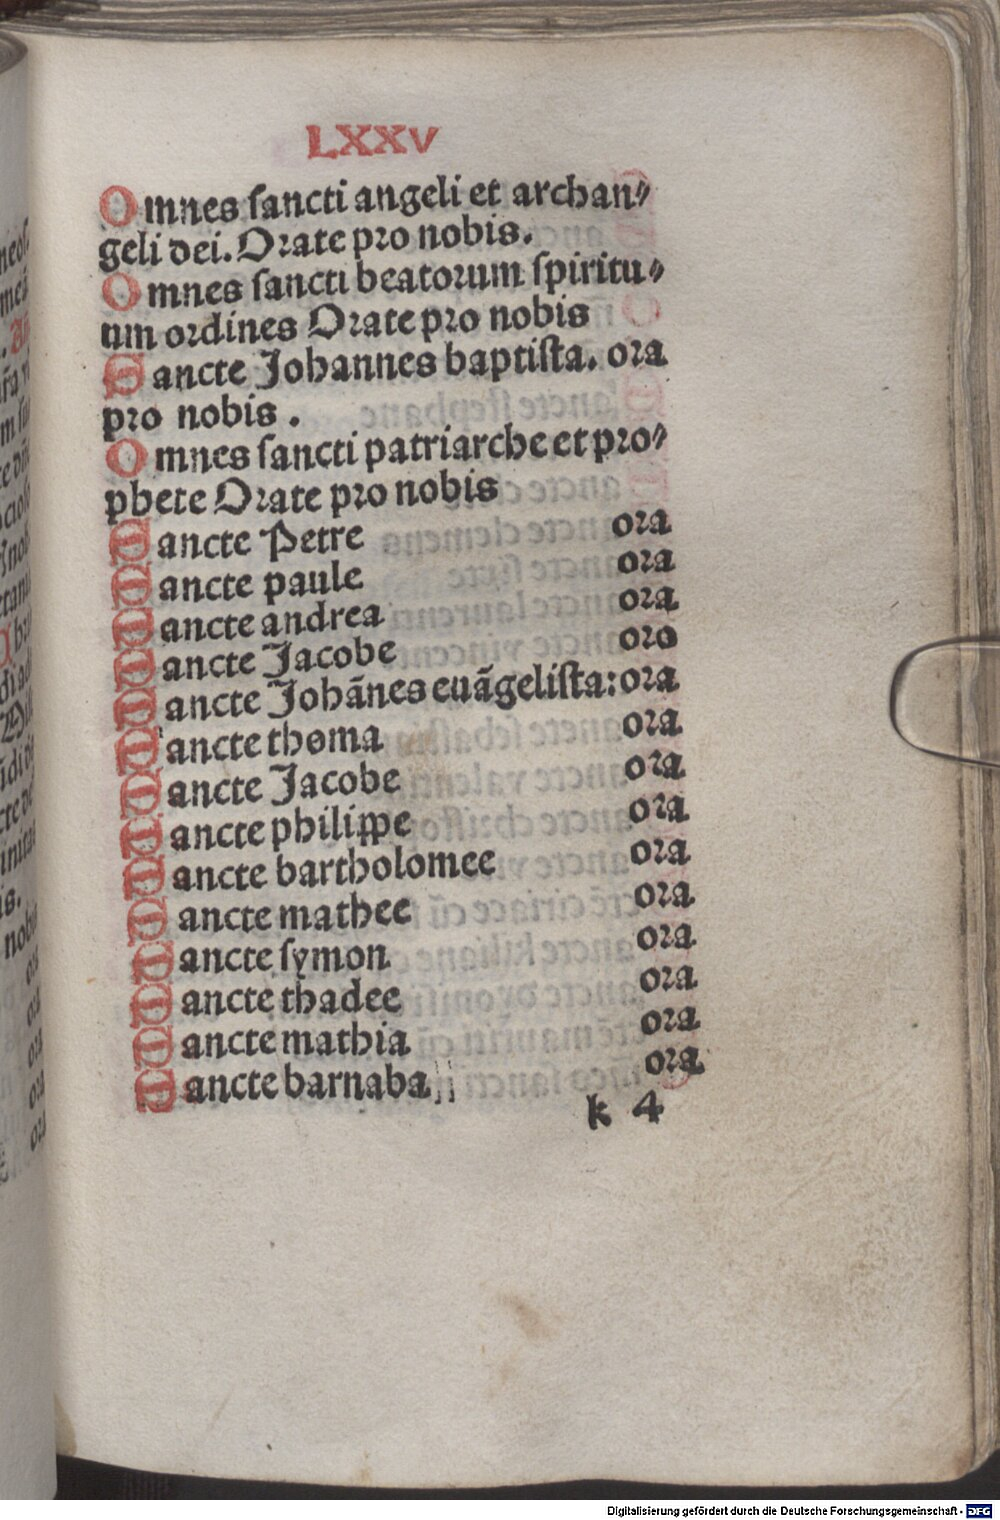 LXXV
Omnes sancti angeli et archan⸗
geli dei. Orate pro nobis.
Omnes sancti beatorum spiritu⸗
um ordines Orate pro nobis
Sancte Johannes baptista. ora
pro nobis .
Omnes sancti patriarche et pro⸗
phete Orate pro nobis
Sancte Petre ora
Sancte paule ora
Sancte andrea ora
Sancte Jacobe oro
Sancte Johãnes euãgelista: ora
Sancte thoma ora
Sancte Jacobe ora
Sancte philippe ora
Sancte bartholomee ora
Sancte mathee ora
Sancte symon ora
Sancte thadee ora
Sancte mathia ora
Sancte barnaba ora
k 4
Digitalisierung gefördert durch die Deutsche Forschungsgemeinschaft - DFG